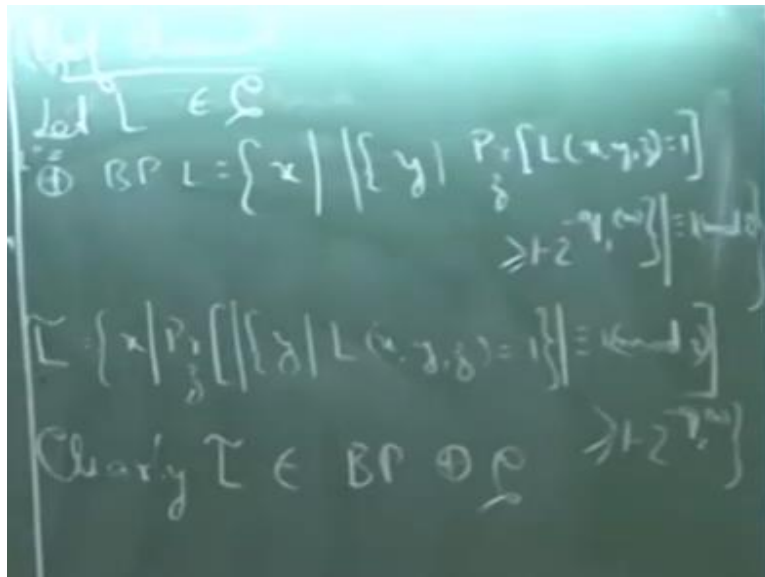 Let L ∈ 𝒞
⊕ BP L = { x | |{ y | Pr_z [L(x,y,z)=1]
≥ 1-2^{-q_1(n)} }| ≡ 1(mod 2) }
L̃ = { x | Pr_z [ |{ y | L(x,y,z) = 1 }| ≡ 1(mod 2) ]
≥ 1-2^{-q_2(n)} }
Clearly L̃ ∈ BP ⊕ 𝒞